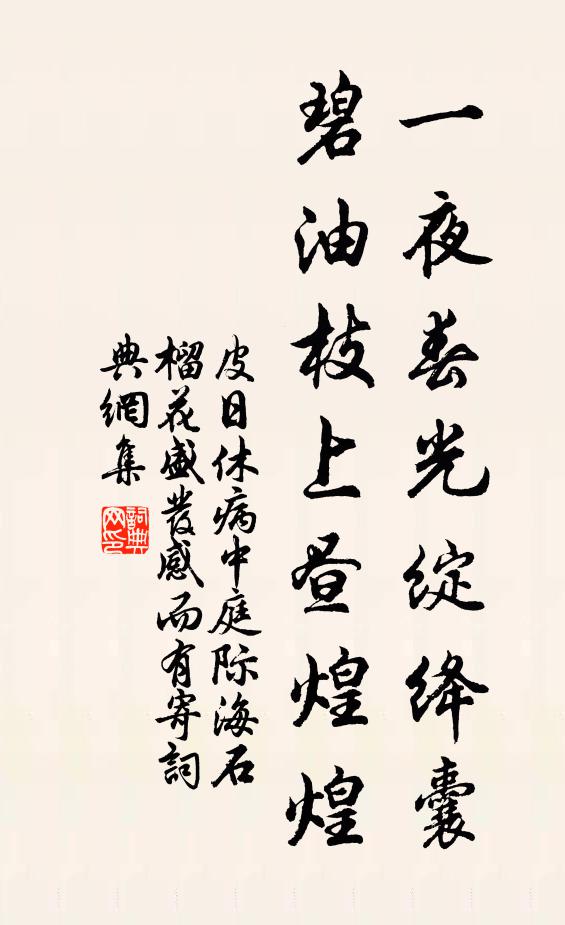 一夜春光綻絳囊
碧油枝上昼煌煌
皮日休病中庭际海石
榴花盛發感而有寄詞
典網集
詞典
网印